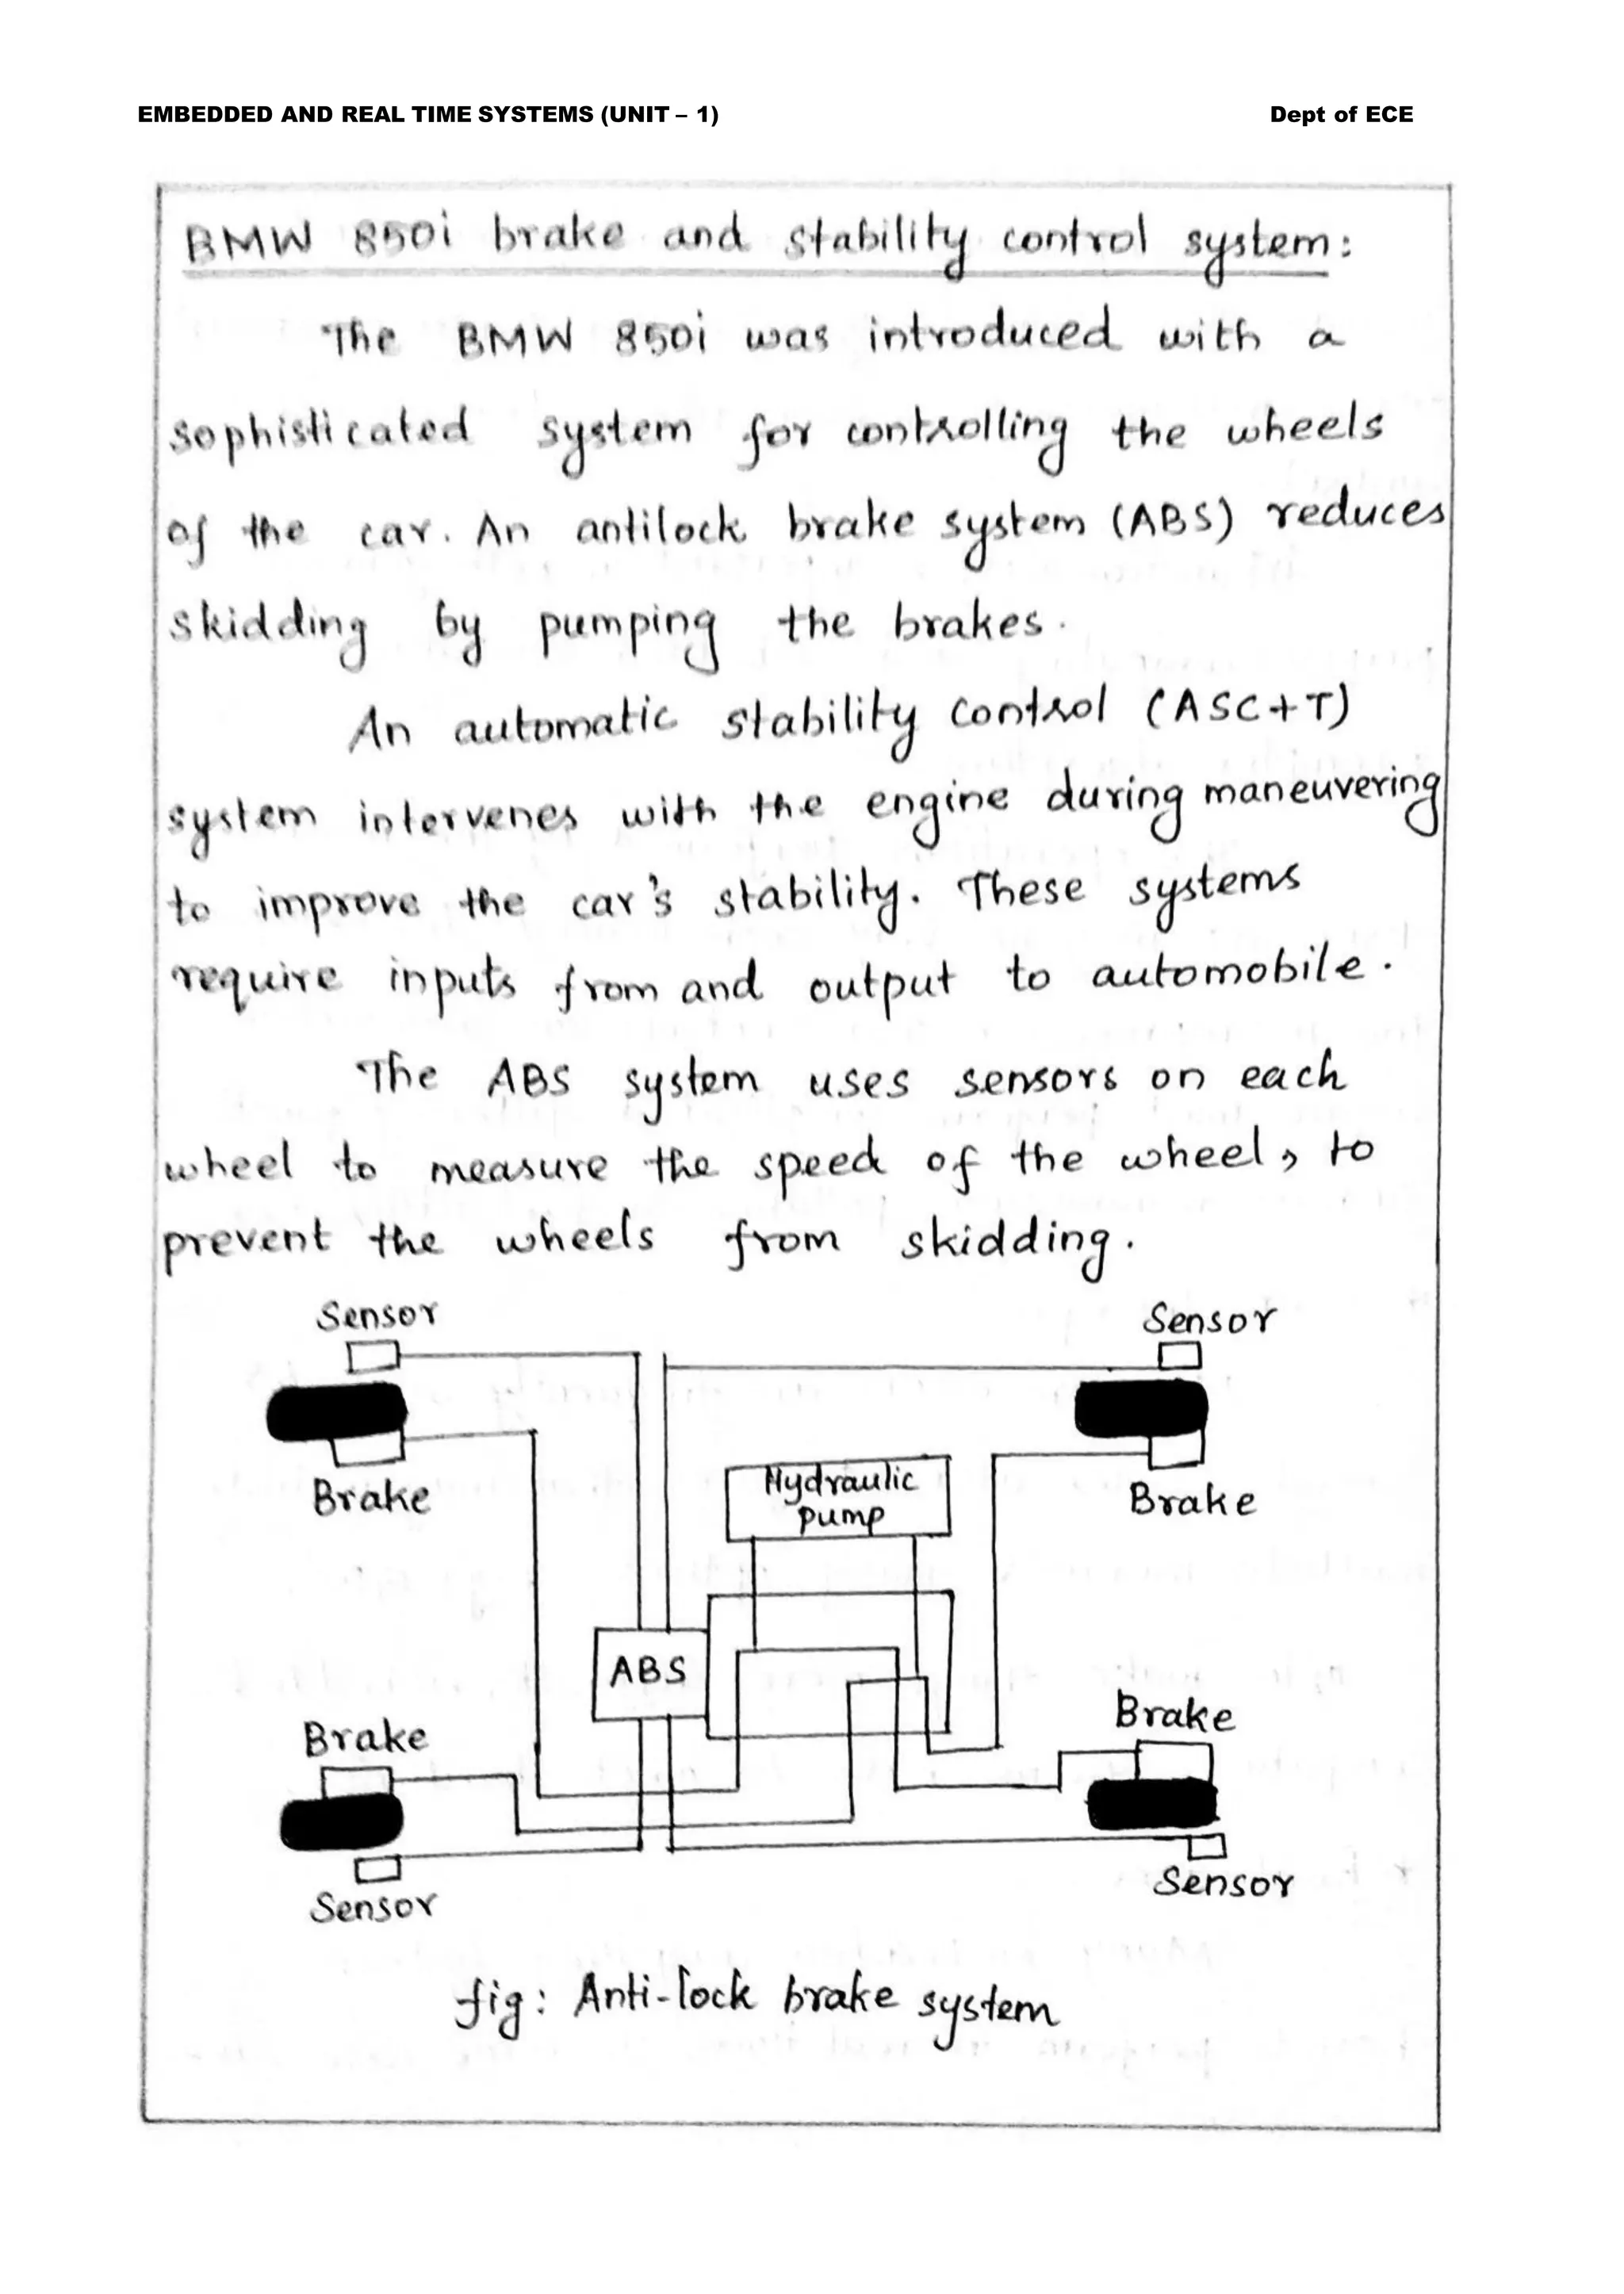 EMBEDDED AND REAL TIME SYSTEMS (UNIT – 1) Dept of ECE
BMW 850i brake and stability control system:
The BMW 850i was introduced with a
sophisticated system for controlling the wheels
of the car. An antilock brake system (ABS) reduces
skidding by pumping the brakes.
An automatic stability control (ASC+T)
system intervenes with the engine during maneuvering
to improve the car's stability. These systems
require inputs from and output to automobile.
The ABS system uses sensors on each
wheel to measure the speed of the wheel, to
prevent the wheels from skidding.
Sensor Sensor
Hydraulic
pump
Brake Brake
ABS
Brake Brake
Sensor Sensor
fig: Anti-lock brake system